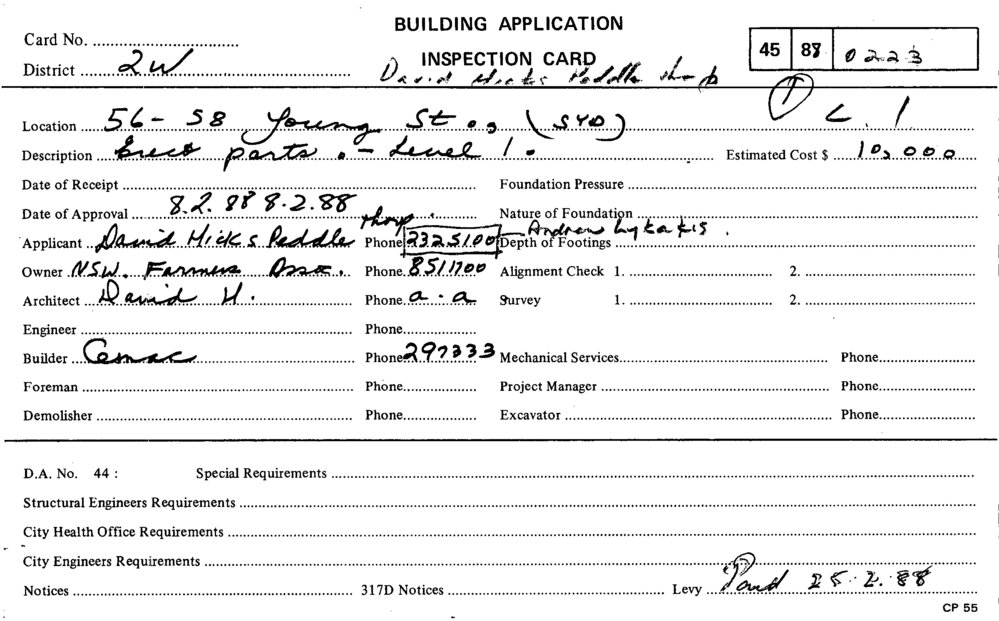 BUILDING APPLICATION
Card No.
INSPECTION CARD
45 88 0223
District 2W
David Hicks Peddle Thorp
C. 1
Location 56 - 58 Young St., (SYD)
Description Erect parts. - Level 1. Estimated Cost $ 10,000
Date of Receipt Foundation Pressure
Date of Approval 8.2.88 8.2.88 Nature of Foundation
Applicant David Hicks Peddle Thorp. Phone 2325100 - Andrew Lykakis. Depth of Footings
Owner NSW. Farmers Assoc. Phone. 8511700 Alignment Check 1. 2.
Architect David H. Phone. a.a Survey 1. 2.
Engineer Phone
Builder Cemac Phone 297333 Mechanical Services Phone
Foreman Phone Project Manager Phone
Demolisher Phone Excavator Phone
D.A. No. 44 : Special Requirements
Structural Engineers Requirements
City Health Office Requirements
City Engineers Requirements
Notices 317D Notices Levy Paid 25.2.88
CP 55